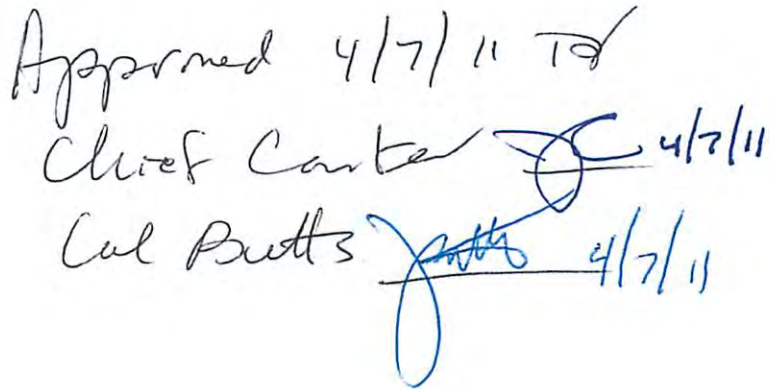 Approved 4/7/11
Chief Carter 4/7/11
Cal Butts 4/7/11